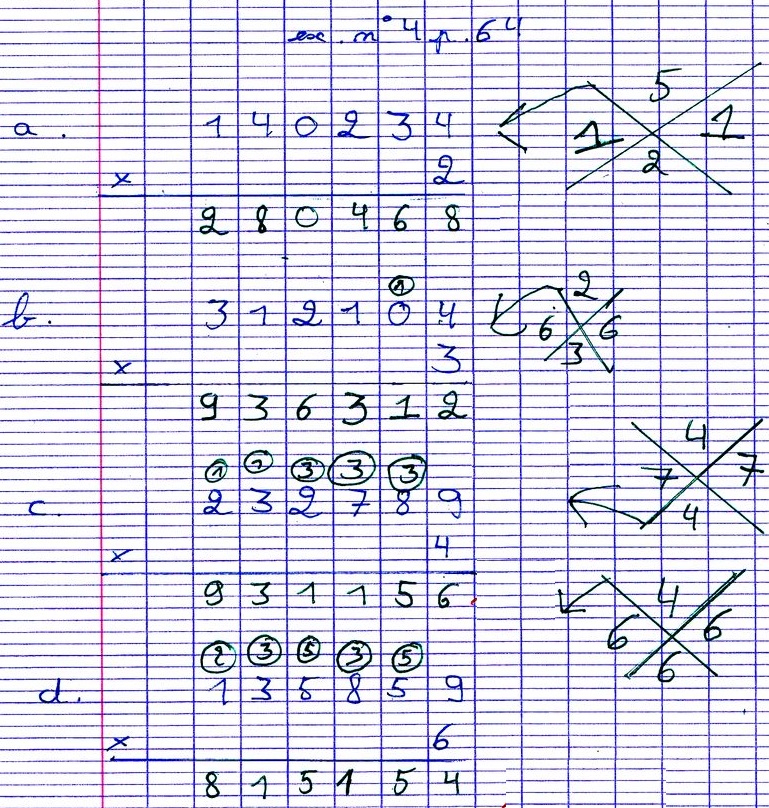 ex. n° 4 p. 64
a. 1 4 0 2 3 4
5
1 1
2
x 2
2 8 0 4 6 8
1
b. 3 1 2 1 0 4
2
6 6
3
x 3
9 3 6 3 1 2
1 1 3 3 3
c. 2 3 2 7 8 9
4
7 7
4
x 4
9 3 1 1 5 6
2 3 5 3 5
d. 1 3 5 8 5 9
4
6 6
6
x 6
8 1 5 1 5 4